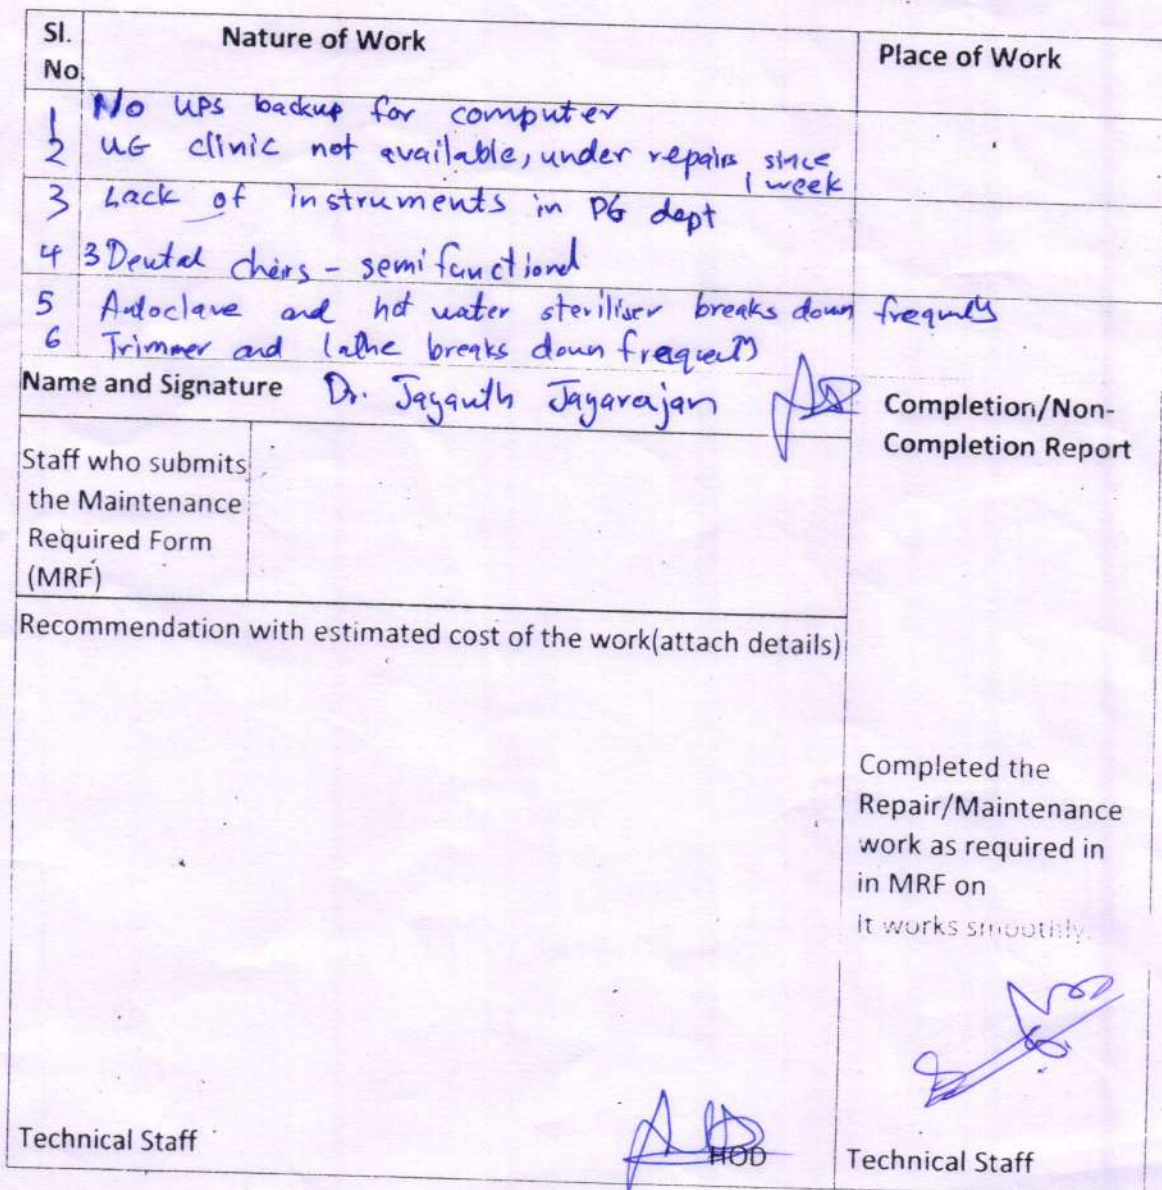 Sl. No Nature of Work Place of Work
1 No UPS backup for computer
2 UG clinic not available, under repairs since 1 week
3 Lack of instruments in PG dept
4 3 Dental chairs - semi functional
5 Autoclave and hot water steriliser breaks down frequently
6 Trimmer and lathe breaks down frequently
Name and Signature Dr. Jayanth Jayarajan
Completion/Non-
Completion Report
Staff who submits
the Maintenance
Required Form
(MRF)
Recommendation with estimated cost of the work(attach details)
Completed the
Repair/Maintenance
work as required in
in MRF on
it works smoothly.
Technical Staff HOD Technical Staff